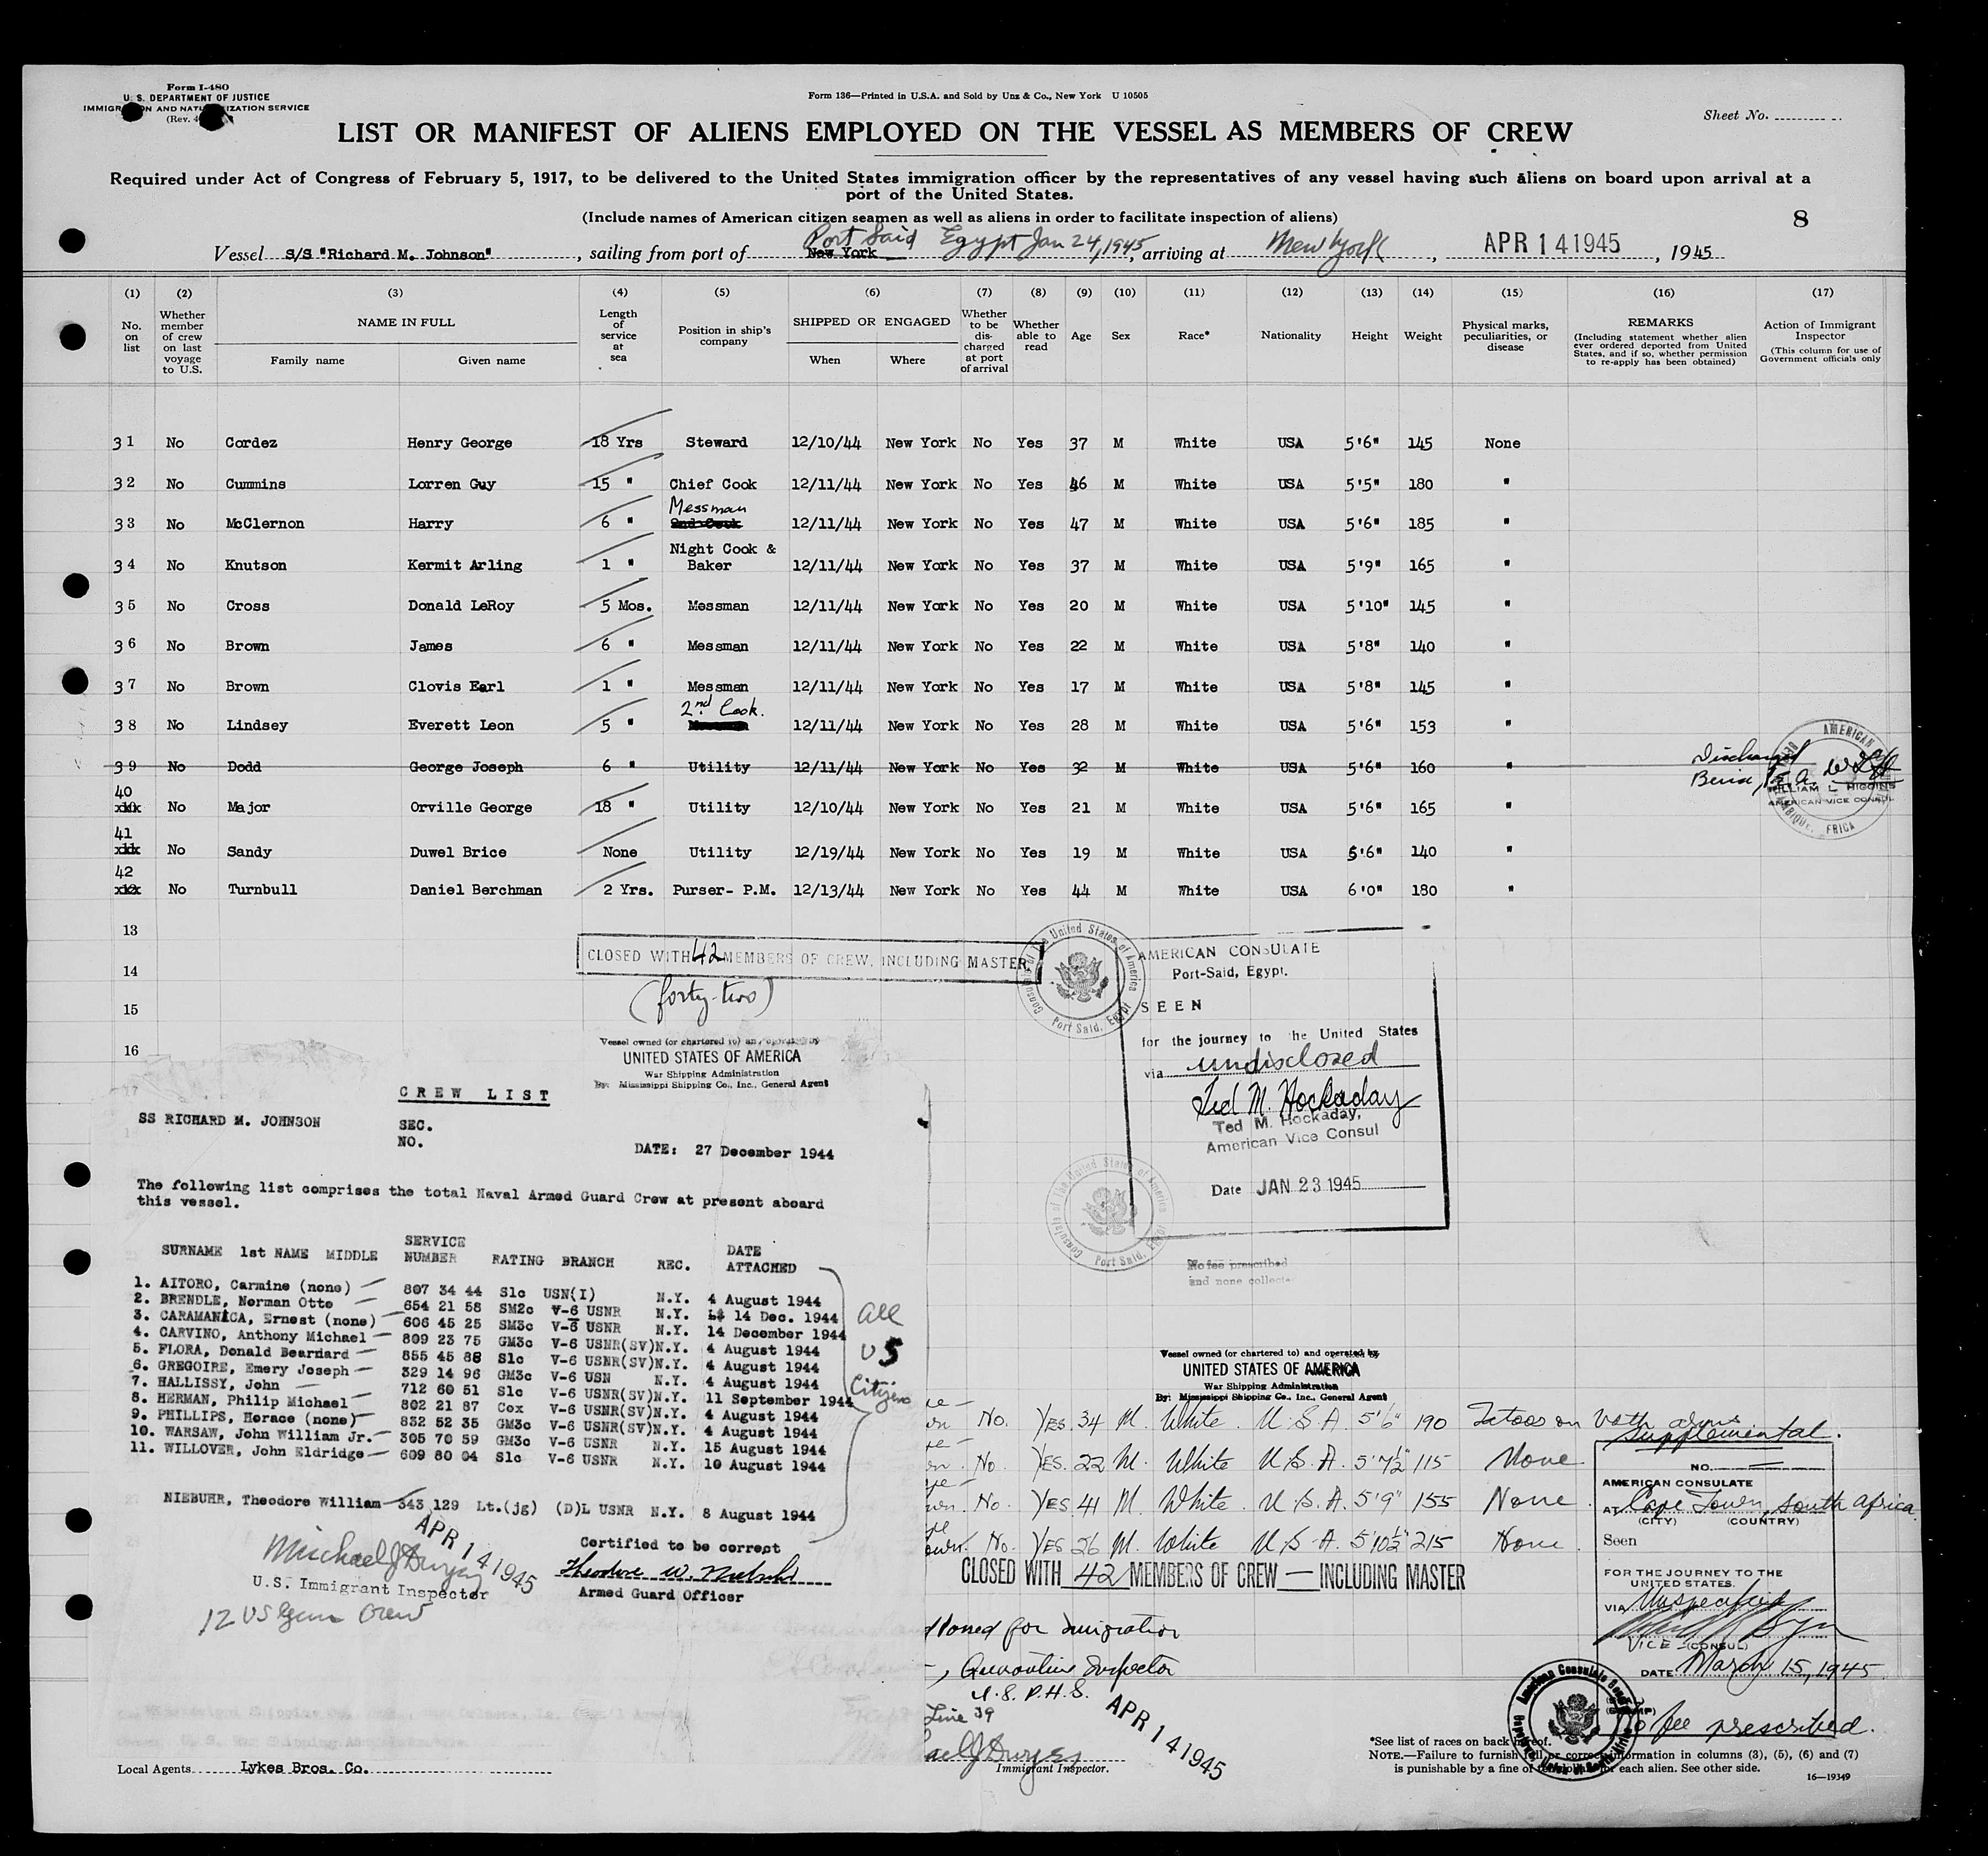 Form I-480
U. S. DEPARTMENT OF JUSTICE
IMMIGRATION AND NATURALIZATION SERVICE
(Rev. 4
Form 136—Printed in U.S.A. and Sold by Unz & Co., New York U 10505
Sheet No.
LIST OR MANIFEST OF ALIENS EMPLOYED ON THE VESSEL AS MEMBERS OF CREW
Required under Act of Congress of February 5, 1917, to be delivered to the United States immigration officer by the representatives of any vessel having such aliens on board upon arrival at a
port of the United States.
(Include names of American citizen seamen as well as aliens in order to facilitate inspection of aliens)
8
Vessel S/S "Richard M. Johnson", sailing from port of New York Port Said Egypt Jan 24, 1945, arriving at New York, APR 14 1945, 1945
(1) (2) (3) (4) (5) (6) (7) (8) (9) (10) (11) (12) (13) (14) (15) (16) (17)
No. on list
Whether member of crew on last voyage to U.S.
NAME IN FULL
Family name Given name
Length of service at sea
Position in ship's company
SHIPPED OR ENGAGED
When Where
Whether to be discharged at port of arrival
Whether able to read
Age Sex Race* Nationality Height Weight
Physical marks, peculiarities, or disease
REMARKS
(Including statement whether alien ever ordered deported from United States, and if so, whether permission to re-apply has been obtained)
Action of Immigrant Inspector
(This column for use of Government officials only
31 No Cordez Henry George 18 Yrs Steward 12/10/44 New York No Yes 37 M White USA 5'6" 145 None
32 No Cummins Lorren Guy 15 " Chief Cook 12/11/44 New York No Yes 46 M White USA 5'5" 180 "
33 No McClernon Harry 6 " Messman 2nd Cook 12/11/44 New York No Yes 47 M White USA 5'6" 185 "
34 No Knutson Kermit Arling 1 " Night Cook & Baker 12/11/44 New York No Yes 37 M White USA 5'9" 165 "
35 No Cross Donald LeRoy 5 Mos. Messman 12/11/44 New York No Yes 20 M White USA 5'10" 145 "
36 No Brown James 6 " Messman 12/11/44 New York No Yes 22 M White USA 5'8" 140 "
37 No Brown Clovis Earl 1 " Messman 12/11/44 New York No Yes 17 M White USA 5'8" 145 "
38 No Lindsey Everett Leon 5 " 2nd Cook. 12/11/44 New York No Yes 28 M White USA 5'6" 153 "
39 No Dodd George Joseph 6 " Utility 12/11/44 New York No Yes 32 M White USA 5'6" 160 "
Discharged
Beira,
WILLIAM L. HIGGINS
AMERICAN VICE CONSUL
40 No Major Orville George 18 " Utility 12/10/44 New York No Yes 21 M White USA 5'6" 165 "
41 No Sandy Duwel Brice None Utility 12/19/44 New York No Yes 19 M White USA 5'6" 140 "
42 No Turnbull Daniel Berchman 2 Yrs. Purser- P.M. 12/13/44 New York No Yes 44 M White USA 6'0" 180 "
13
14
15
16
CLOSED WITH 42 MEMBERS OF CREW, INCLUDING MASTER
(forty-two)
Consulate of The United States of America Port Said, Egypt
AMERICAN CONSULATE
Port-Said, Egypt.
SEEN
for the journey to the United States
via undisclosed
Ted M. Hockaday
Ted M. Hockaday,
American Vice Consul
Date JAN 23 1945
Consulate of The United States of America Port Said, Egypt
No fee prescribed
and none collected
Vessel owned (or chartered to) and operated by
UNITED STATES OF AMERICA
War Shipping Administration
By: Mississippi Shipping Co., Inc., General Agent
CREW LIST
SS RICHARD M. JOHNSON SEC.
NO.
DATE: 27 December 1944
The following list comprises the total Naval Armed Guard Crew at present aboard
this vessel.
SURNAME 1st NAME MIDDLE SERVICE NUMBER RATING BRANCH REC. DATE ATTACHED
1. AITORO, Carmine (none) 807 34 44 S1c USN(I) N.Y. 4 August 1944
2. BRENDLE, Norman Otto 654 21 58 SM2c V-6 USNR N.Y. 14 Dec. 1944
3. CARAMANICA, Ernest (none) 606 45 25 SM3c V-6 USNR N.Y. 14 December 1944
4. CARVINO, Anthony Michael 809 23 75 GM3c V-6 USNR(SV) N.Y. 4 August 1944
5. FLORA, Donald Beardard 855 45 88 S1c V-6 USNR(SV) N.Y. 4 August 1944
6. GREGOIRE, Emery Joseph 329 14 96 GM3c V-6 USN N.Y. 4 August 1944
7. HALLISSY, John 712 60 51 S1c V-6 USNR(SV) N.Y. 11 September 1944
8. HERMAN, Philip Michael 802 21 87 Cox V-6 USNR(SV) N.Y. 4 August 1944
9. PHILLIPS, Horace (none) 832 52 35 GM3c V-6 USNR(SV) N.Y. 4 August 1944
10. WARSAW, John William Jr. 305 70 59 GM3c V-6 USNR N.Y. 15 August 1944
11. WILLOVER, John Eldridge 609 80 04 S1c V-6 USNR N.Y. 10 August 1944
All
US
Citizens
NIEBUHR, Theodore William 343 129 Lt.(jg) (D)L USNR N.Y. 8 August 1944
APR 14 1945
Certified to be correct
U.S. Immigrant Inspector
Armed Guard Officer
12 US Gun Crew
Vessel owned (or chartered to) and operated by
UNITED STATES OF AMERICA
War Shipping Administration
By: Mississippi Shipping Co., Inc., General Agent
No. Yes. 34 M. White. U.S.A. 5'6" 190 Tatoos on both arms
No. Yes. 22 M. White U.S.A. 5'7½" 115 None
No. Yes. 41 M. White. U.S.A. 5'9" 155 None
No. Yes 26 M. White U.S.A. 5'10½" 215 None
CLOSED WITH 42 MEMBERS OF CREW — INCLUDING MASTER
Supplemental.
NO. —
AMERICAN CONSULATE
AT Cape Town, South Africa
(CITY) (COUNTRY)
Seen
FOR THE JOURNEY TO THE
UNITED STATES.
VIA Unspecified
VICE (CONSUL)
DATE March 15, 1945
No fee prescribed.
for Quarantine Inspector
U.S.P.H.S.
Line 39
APR 14 1945
Immigrant Inspector.
Local Agents Lykes Bros. Co.
*See list of races on back hereof.
NOTE.—Failure to furnish full or correct information in columns (3), (5), (6) and (7)
is punishable by a fine of for each alien. See other side.
16—19349